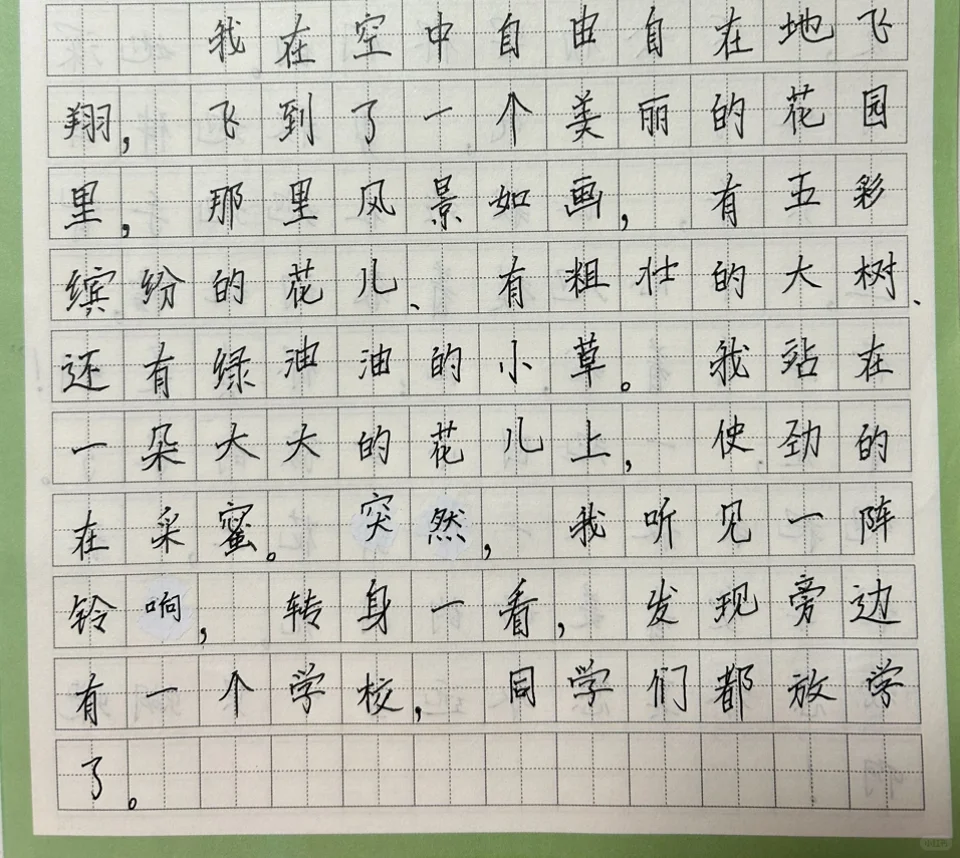 我在空中自由自在地飞
翔，飞到了一个美丽的花园
里，那里风景如画，有五彩
缤纷的花儿、有粗壮的大树、
还有绿油油的小草。我站在
一朵大大的花儿上，使劲的
在采蜜。突然，我听见一阵
铃响，转身一看，发现旁边
有一个学校，同学们都放学
了。
小红书